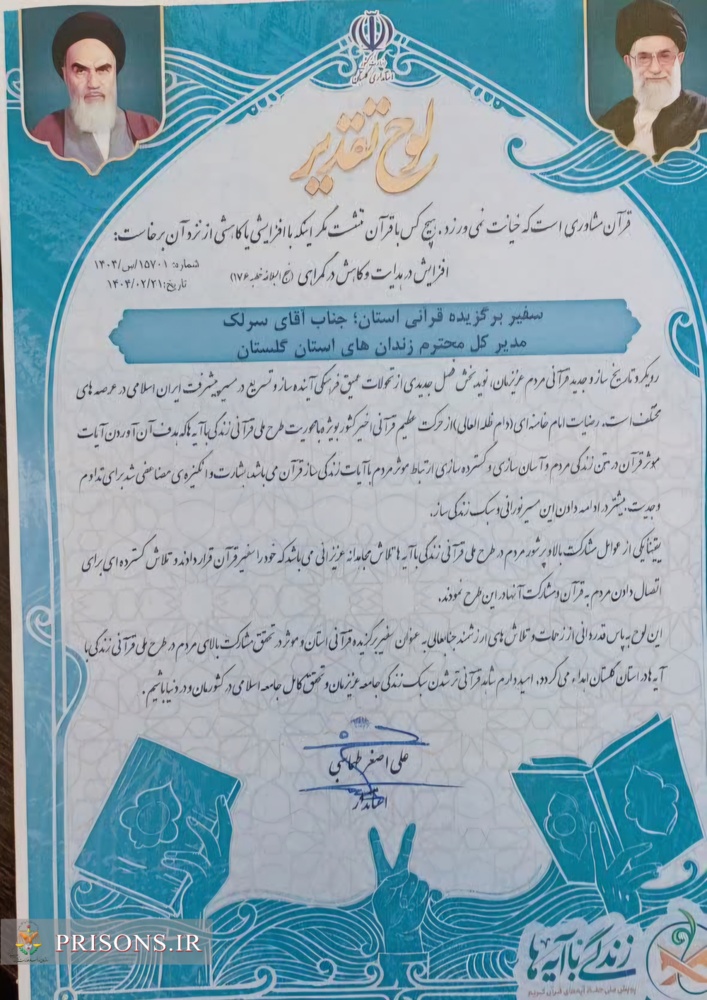 استانداری گلستان
لوح تقدیر
قرآن مشاوری است که خیانت نمی ورزد، هیچ کس با قرآن ننشست مگر اینکه با افزایش یا کاستی از نزد آن برخاست:
افزایش در هدایت و کاهش در گمراهی (نهج البلاغه خطبه ۱۷۶)
شماره: ۱۵۷۰۱/س/۱۴۰۴
تاریخ: ۱۴۰۴/۰۲/۳۱
سفیر برگزیده قرآنی استان؛ جناب آقای سرلک
مدیر کل محترم زندان های استان گلستان
رویکرد تاریخ ساز و جدید قرآنی مردم عزیزمان، نوید بخش فصل جدیدی از تحولات عمیق فرهنگی آینده ساز و تسریع در مسیر پیشرفت ایران اسلامی در عرصه های
مختلف است. رضایت امام خامنه ای (دام ظله العالی) از حرکت عظیم قرآنی اخیر کشور بویژه با محوریت طرح ملی قرآنی زندگی با آیه ها که هدف آن آوردن آیات
موثر قرآن در متن زندگی مردم و آسان سازی و گسترده سازی ارتباط موثر مردم با آیات زندگی ساز قرآن می باشد، بشارت و انگیزه ی مضاعفی شد برای تداوم
و جدیت بیشتر در ادامه دادن این مسیر نورانی و سبک زندگی ساز.
یقیناً یکی از عوامل مشارکت بالا و پرشور مردم در طرح ملی قرآنی زندگی با آیه ها تلاش مجاهدانه عزیزانی می باشد که خود را سفیر قرآن قرار دادند و تلاش گسترده ای برای
اتصال دادن مردم به قرآن و مشارکت آنها در این طرح نمودند.
این لوح به پاس قدردانی از زحمات و تلاش های ارزشمند جنابعالی به عنوان سفیر برگزیده قرآنی استان و موثر در تحقق مشارکت بالای مردم در طرح ملی قرآنی زندگی با
آیه ها در استان گلستان اهداء می گردد. امید دارم شاهد قرآنی تر شدن سبک زندگی جامعه عزیزمان و تحقق کامل جامعه اسلامی در کشورمان و در دنیا باشیم.
علی اصغر طهماسبی
استاندار
زندگی با آیه ها
پویش ملی حفظ آیه‌های قرآن کریم
PRISONS.IR